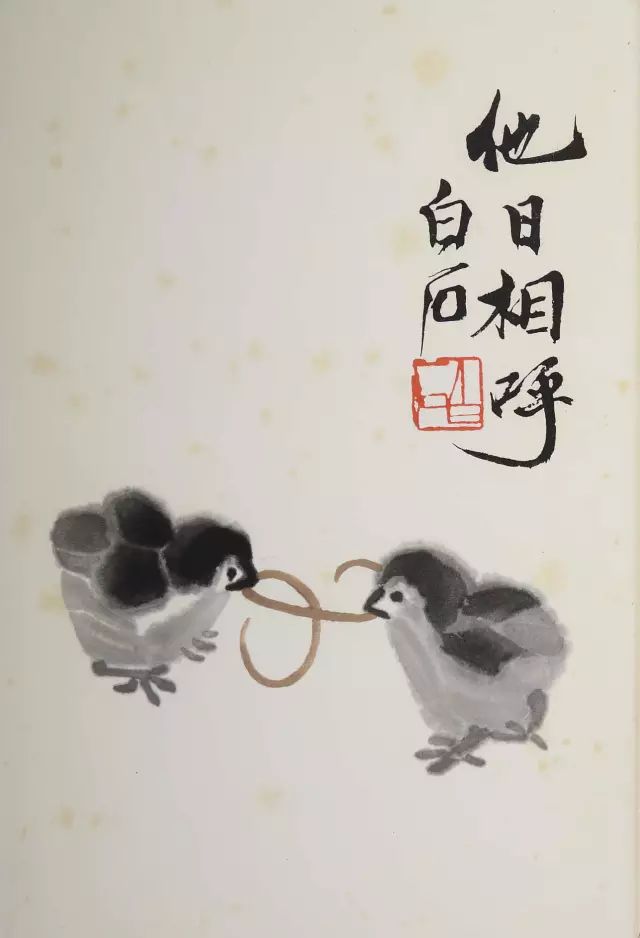 他日相呼
白石